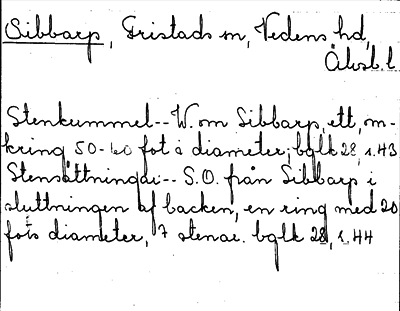 Sibbarp, Gristads sn, Vedens hd,
Älvsb. l.
Stenkummel-- W. om Sibbarp, ett, om-
kring 50-60 fot i diameter; bglk 28, s. 43
Stensättningar-- S.O. från Sibbarp i
sluttningen af backen, en ring med 20
fots diameter, 7 stenar. bglk 28, s. 44